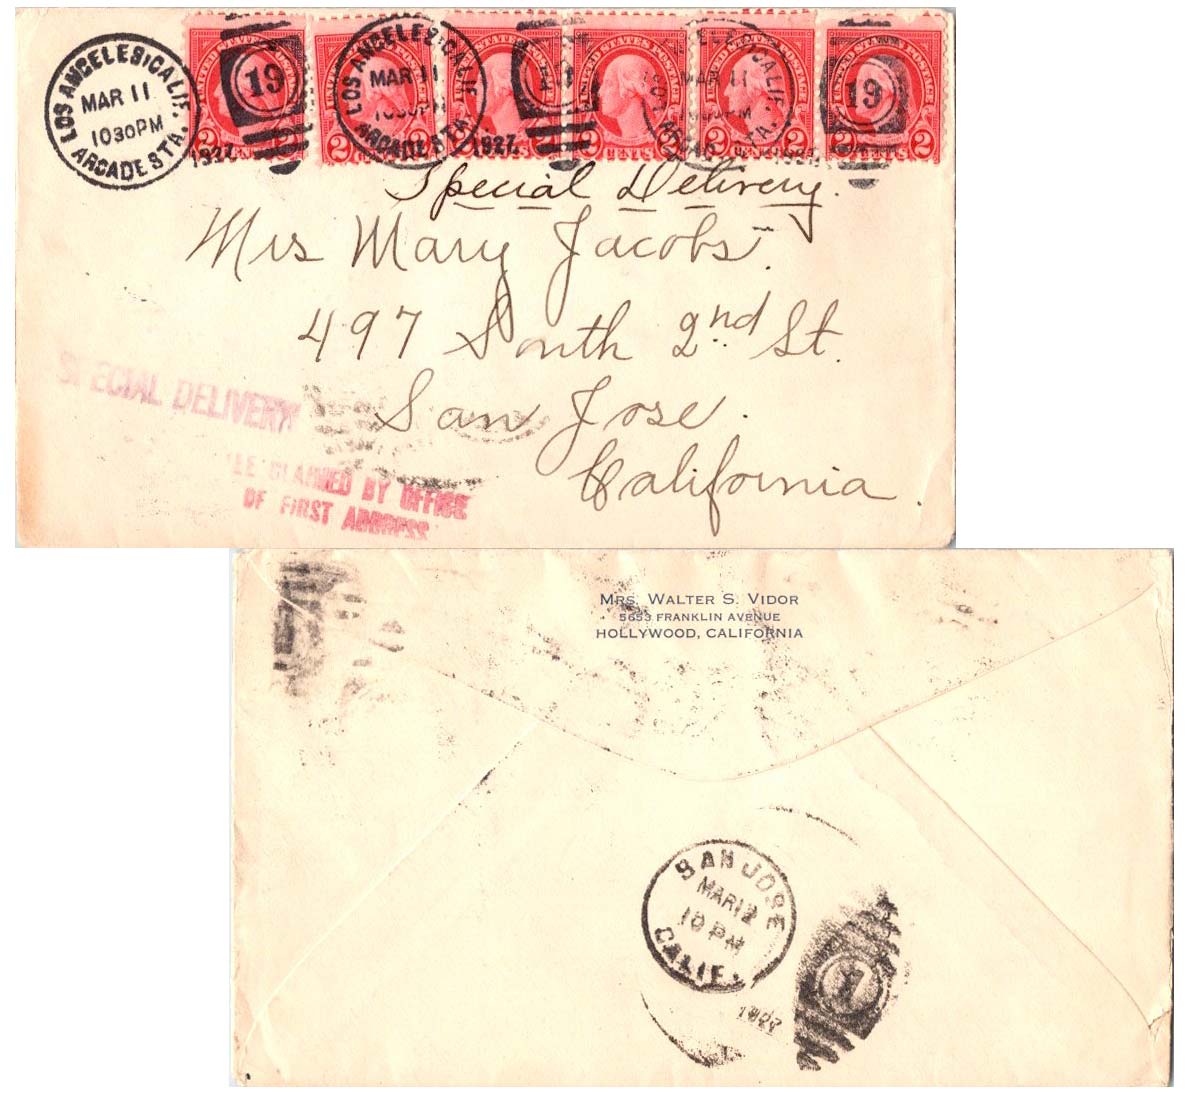 LOS ANGELES, CALIF.
MAR 11
1030PM
ARCADE STA.
1927.
19
LOS ANGELES, CALIF
MAR 11
1030PM
ARCADE STA.
1927.
19
MAR 11
1030PM
19
UNITED STATES POSTAGE
2 CENTS 2
Special Delivery.
Mrs Mary Jacobs.
497 South 2nd St.
San Jose.
California.
SPECIAL DELIVERY
CLAIMED BY OFFICE
OF FIRST ADDRESS
MRS. WALTER S. VIDOR
5653 FRANKLIN AVENUE
HOLLYWOOD, CALIFORNIA
SAN JOSE
MAR 12
10 PM
CALIF.
1927
1